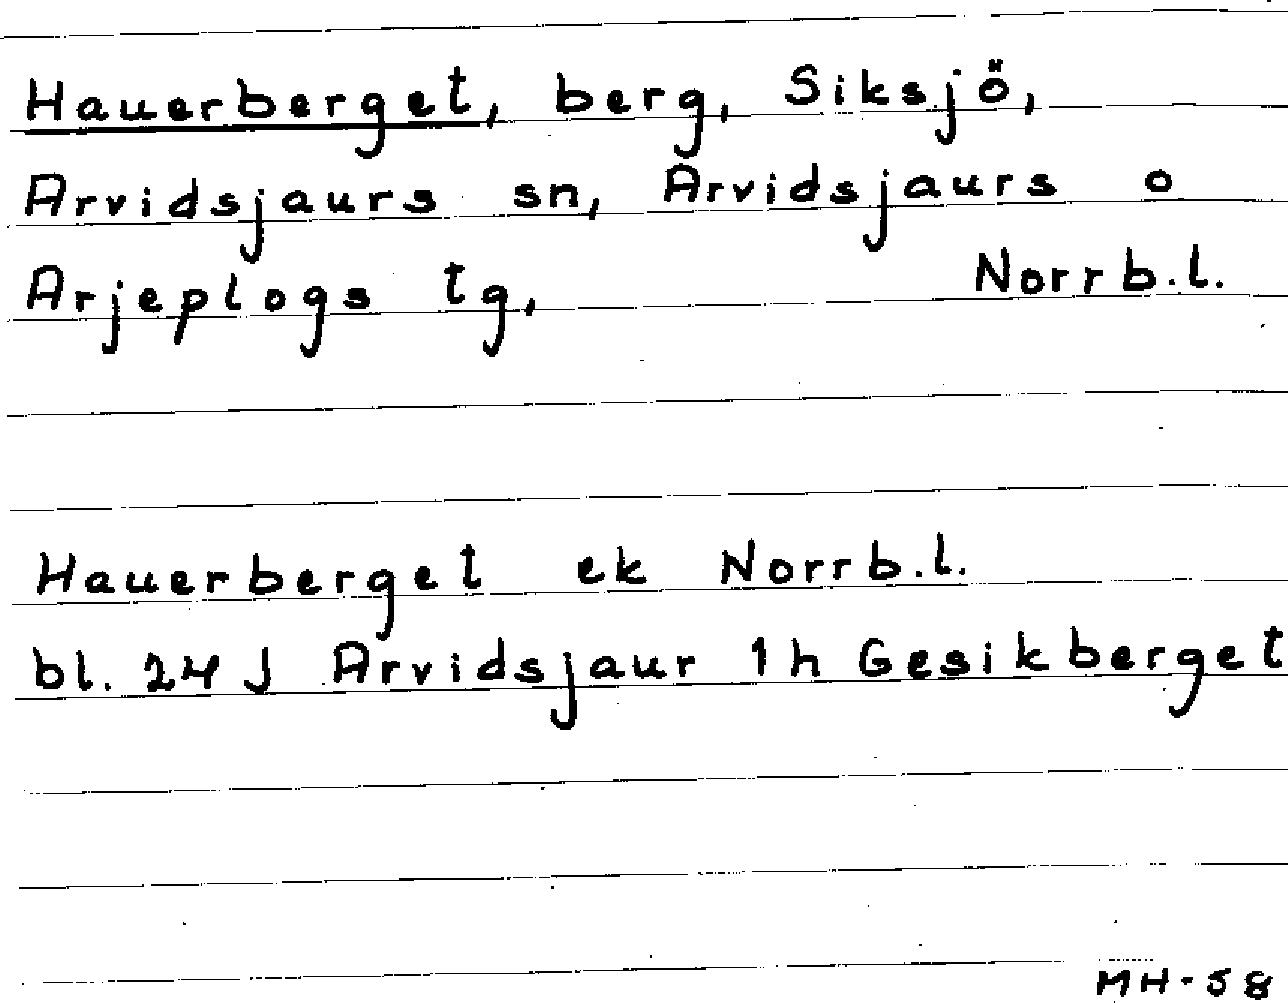 Hauerberget, berg, Siksjö,
Arvidsjaurs sn, Arvidsjaurs o
Arjeplogs tg, Norrb.l.
Hauerberget ek Norrb.l.
bl. 24 J Arvidsjaur 1h Gesikberget
MH-58